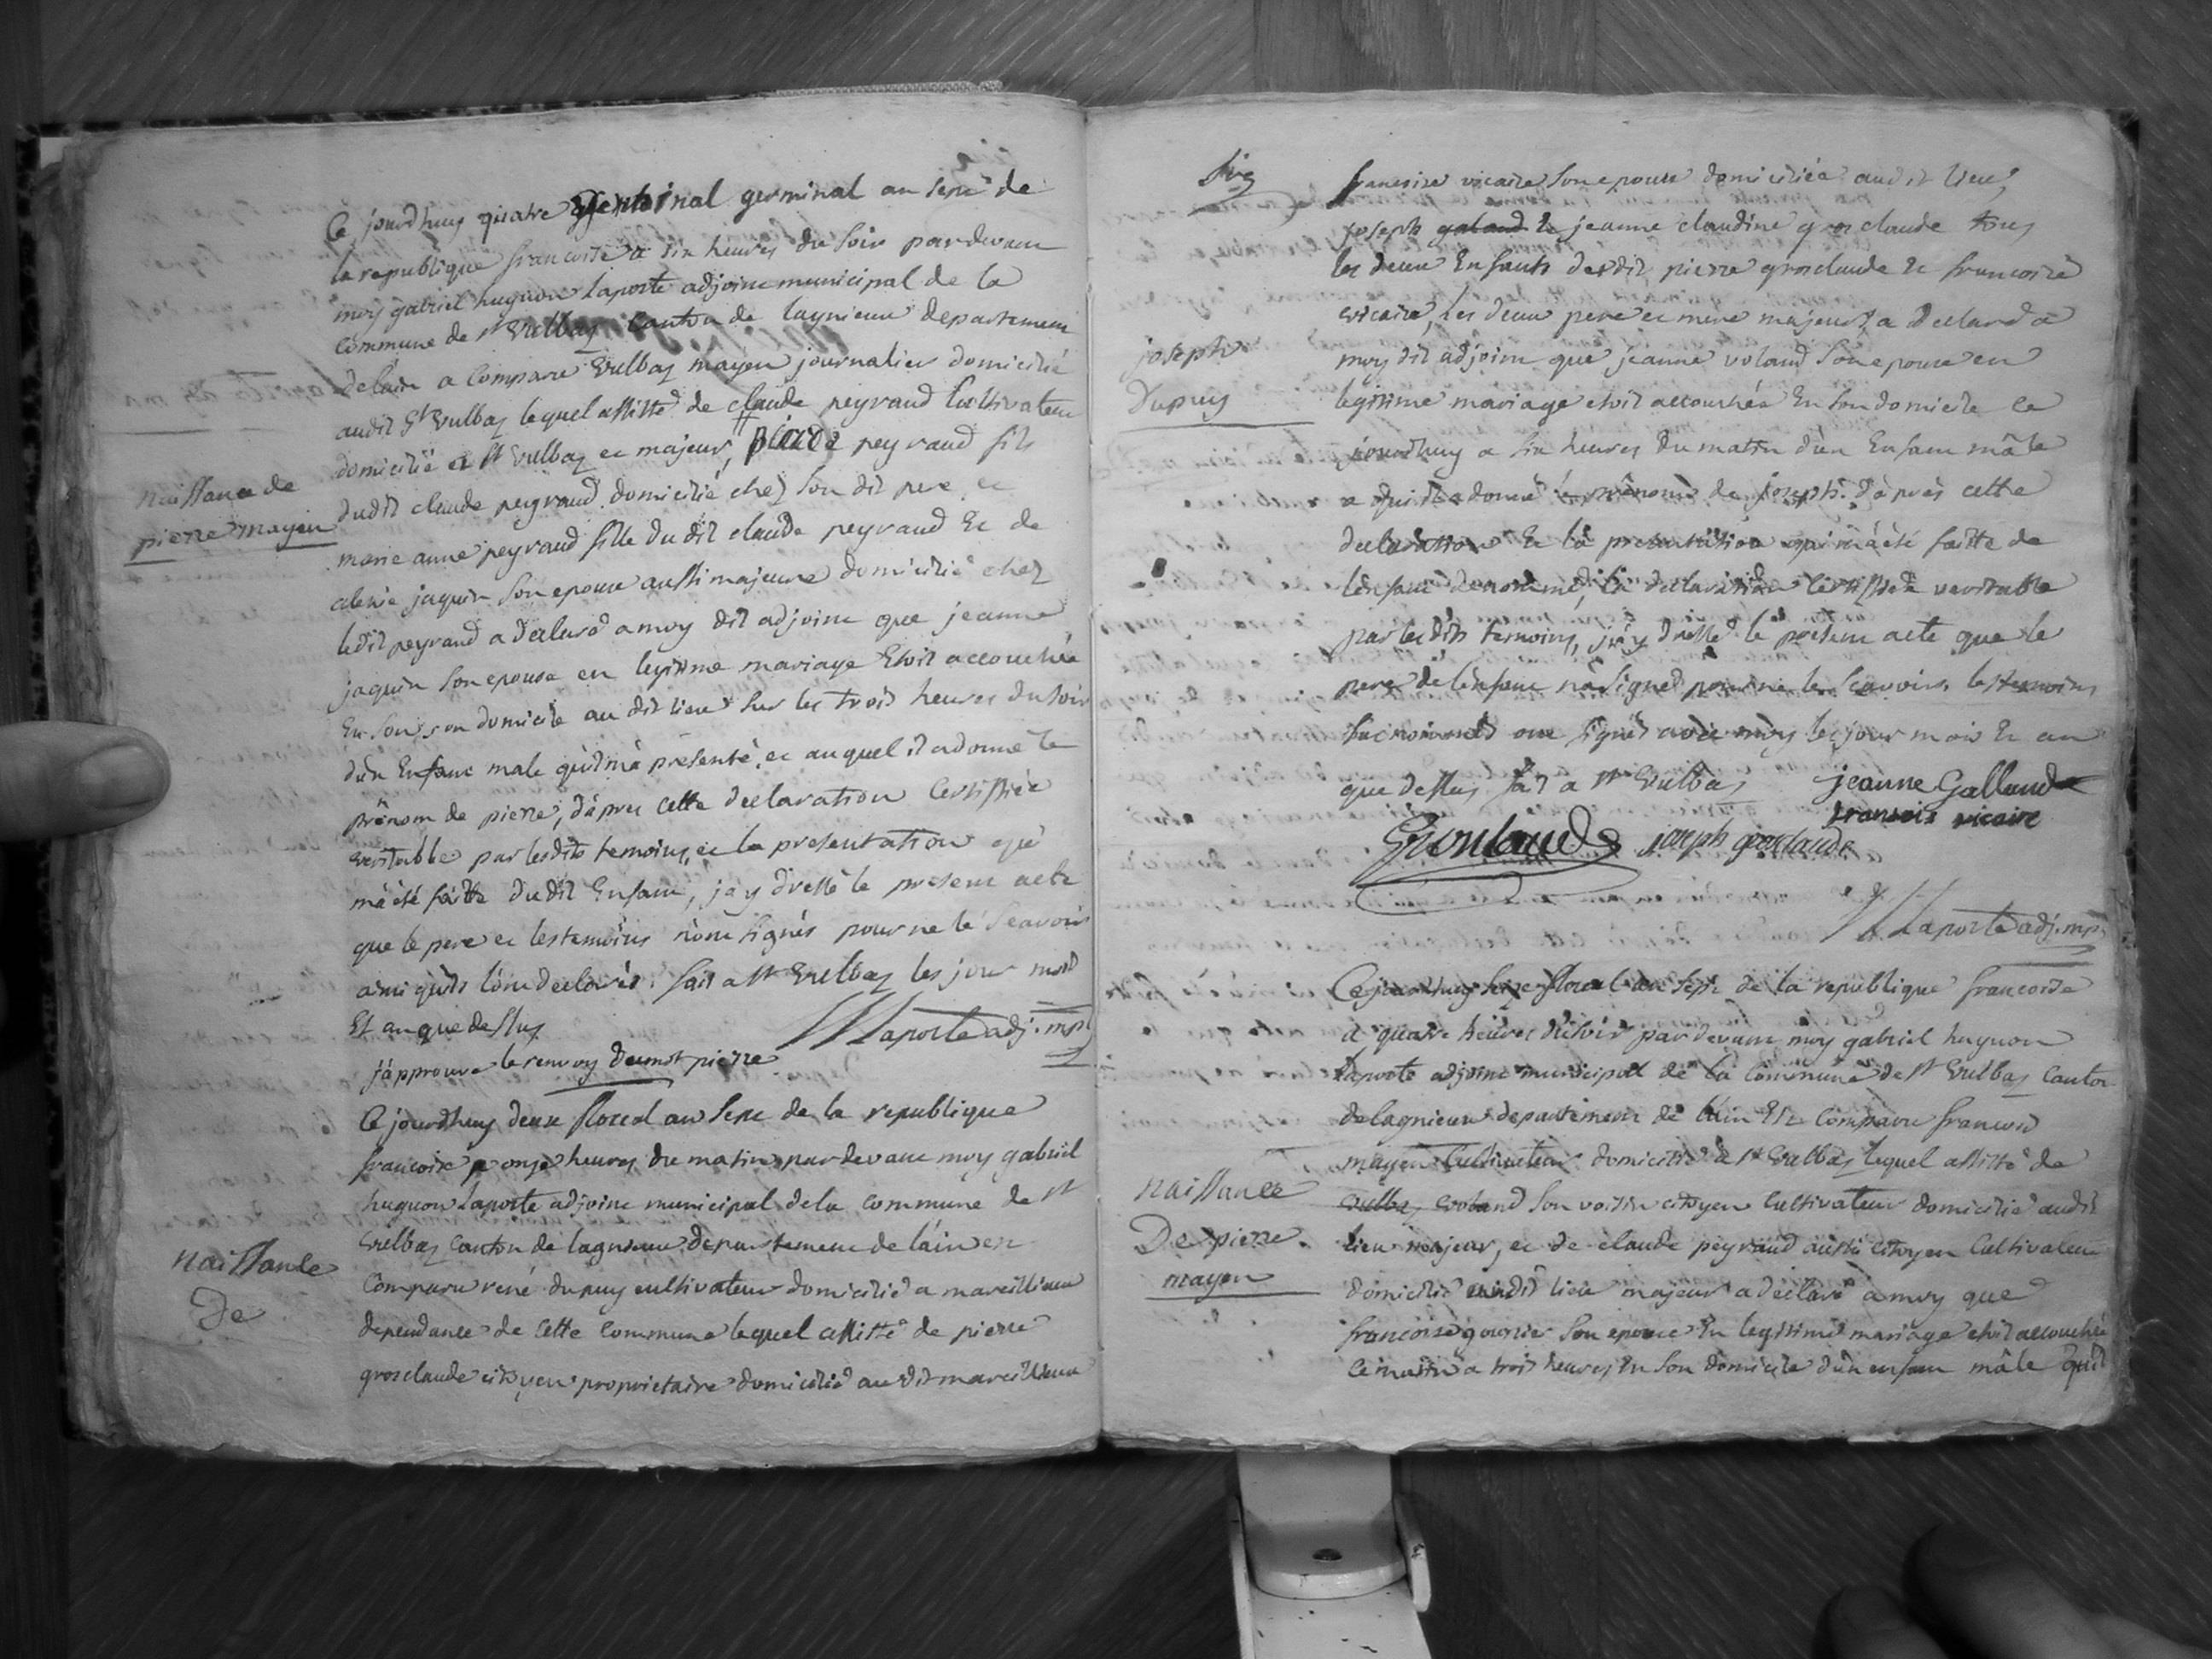 Ce jourdhuy quatre germinal an sept de
la republique francoise a six heures du soir pardevant
moy gabriel huguon Laporte adjoint municipal de la
commune de st Vulbaz Canton de lagnieux departement
delain a Comparu Vulbaz mayen journalier domicilié
audit st Vulbaz lequel assisté de claude peyraud Cultivateur
domicilié a st Vulbaz et majeur, peyraud fils
dudit claude peyraud domicilié chez son dit pere, et
marie anne peyraud fille du dit claude peyraud Et de
jaquin son epouse aussi majeure domicilié chez
ledit peyraud a declaré a moy dit adjoint que jeanne
jaquin son epouse en legitime mariage Etoit accouchée
En son son domicile au dit lieu sur les trois heures du soir
d'un Enfant male qu'il m'a présenté, et auquel il a donné le
prénom de pierre, d'apres cette declaration Certiffiée
veritable par lesdits temoins, et la presentation qui
m'a été faitte dudit Enfant, j'ay dressé le present acte
que le pere et les temoins n'ont signés pour ne le scavoir
ainsi qu'ils l'ont declarés. fait a st Vulbaz les jour mois
Et an que dessus
Laporte adj. mpl
j'approuve le renvoy du mot pierre
naissance de
pierre mayen
Ce jourdhuy deux floreal an sept de la republique
francoise a onze heures du matin pardevant moy gabriel
huguon Laporte adjoint municipal dela commune de st
Vulbaz Canton de lagnieux departement de l'ain est
Comparu rené dupuy cultivateur domicilié a marcillieux
dependance de cette Commune lequel assisté de pierre
grosclaude citoyen proprietaire domicilié audit marcillieux
naissance
De
six
francoise vicaire son epouse domiciliée audit lieu,
joseph galand & jeanne claudine grosclaude tous
les deux Enfants desdit pierre grosclaude et francoise
vicaire, les deux pere et mere majeurs, a declaré a
moy dit adjoint que jeanne voland son epouse en
legitime mariage etoit accouchée En son domicile ce
jourdhuy a six heures du matin d'un Enfant mâle
a qui il a donné le prénom de joseph. d'après cette
declaration Et la presentation qui m'a été faitte de
l'enfant denommé, la declaration certiffiée veritable
par lesdits temoins, j'ay dressé le present acte que le
pere de l'enfant n'a signé pour ne le scavoir, les temoins
sus nommés ont signés avec moy les jour mois Et an
que dessus fait a st Vulbas
jeanne Galland
francois vicaire
joseph grosclaude
Laporte adj. mpl
joseph
Dupuy
Ce jourdhuy seize floreal an sept de la republique francoise
a quatre heures du soir pardevant moy gabriel huguon
Laporte adjoint municipal de la commune de st Vulbaz Canton
de lagnieux departement de l'ain Est Comparu francois
mayen Cultivateur domicilié a st Vulbaz lequel assisté de
Vulbaz son voisin citoyen Cultivateur domicilié audit
lieu majeur, et de claude peyraud aussi citoyen Cultivateur
domicilié audit lieu majeur a déclaré a moy que
francoise son epouse En legitime mariage etoit accouchée
ce matin a trois heures En son domicile d'un enfant mâle qu'il
naissance
De pierre
mayen